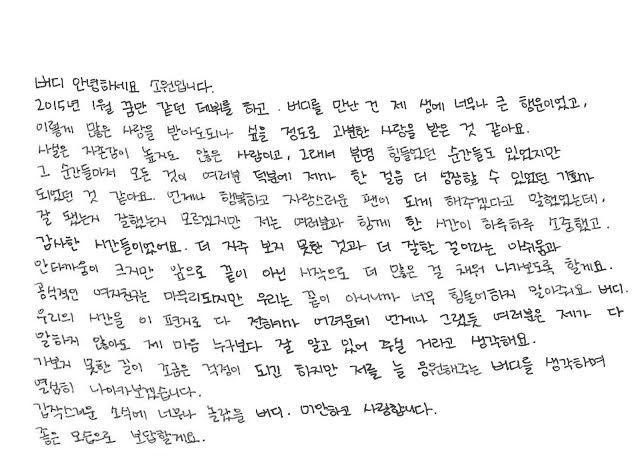 버디 안녕하세요 소원입니다.
2015년 1월 꿈만 같던 데뷔를 하고. 버디를 만난 건 제 생에 너무나 큰 행운이었고,
이렇게 많은 사랑을 받아도되나 싶을 정도로 과분한 사랑을 받은 것 같아요.
사실은 자존감이 높지도 않은 사람이고, 그래서 분명 힘들었던 순간들도 있었지만
그 순간들마저 모든 것이 여러분 덕분에 제가 한 걸음 더 성장할 수 있었던 기회가
되었던 것 같아요. 언제나 행복하고 자랑스러운 팬이 되게 해주겠다고 말했었는데,
잘 됐는지 잘했는지 모르겠지만 저는 여러분과 함께 한 시간이 하루하루 소중했고.
감사한 시간들이었어요. 더 자주 보지 못한 것과 더 잘할 걸이라는 아쉬움과
안타까움이 크지만 앞으로 끝이 아닌 시작으로 더 많은 걸 채워 나가보도록 할게요.
공식적인 여자친구는 마무리되지만 우리는 끝이 아니니까 너무 힘들어하지 말아주세요 버디.
우리의 시간을 이 편지로 다 전하기가 어려운데 언제나 그랬듯 여러분은 제가 다
말하지 않아도 제 마음 누구보다 잘 알고 있어 주실 거라고 생각해요.
가보지 못한 길이 조금은 걱정이 되긴 하지만 저를 늘 응원해주는 버디를 생각하며
열심히 나아가보겠습니다.
갑작스러운 소식에 너무나 놀랐을 버디. 미안하고 사랑합니다.
좋은 모습으로 보답할게요.